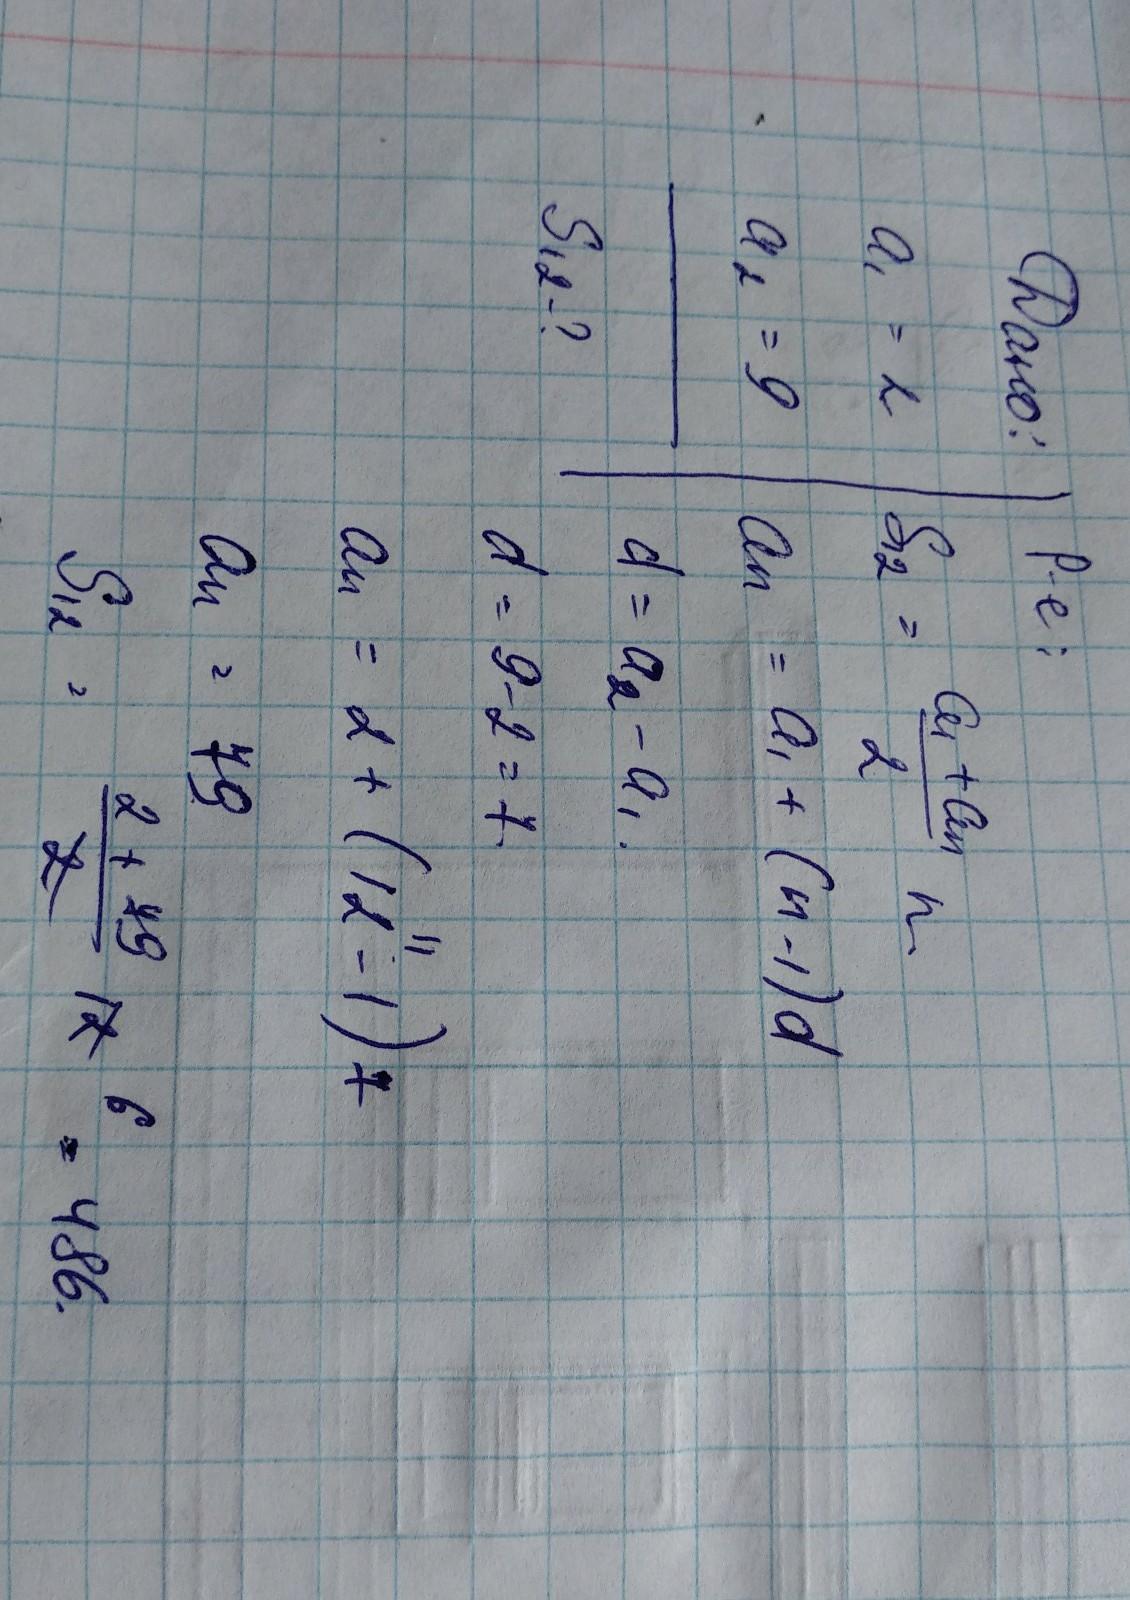 Дано:
a₁ = 2
a₂ = 9
S₁₂ - ?
Р-е:
S₁₂ = (a₁ + aₙ)/2 n
aₙ = a₁ + (n - 1)d
d = a₂ - a₁.
d = 9 - 2 = 7.
11
aₙ = 2 + (12 - 1) 7
aₙ = 79
S₁₂ = (2 + 79)/2 12 6 = 486.